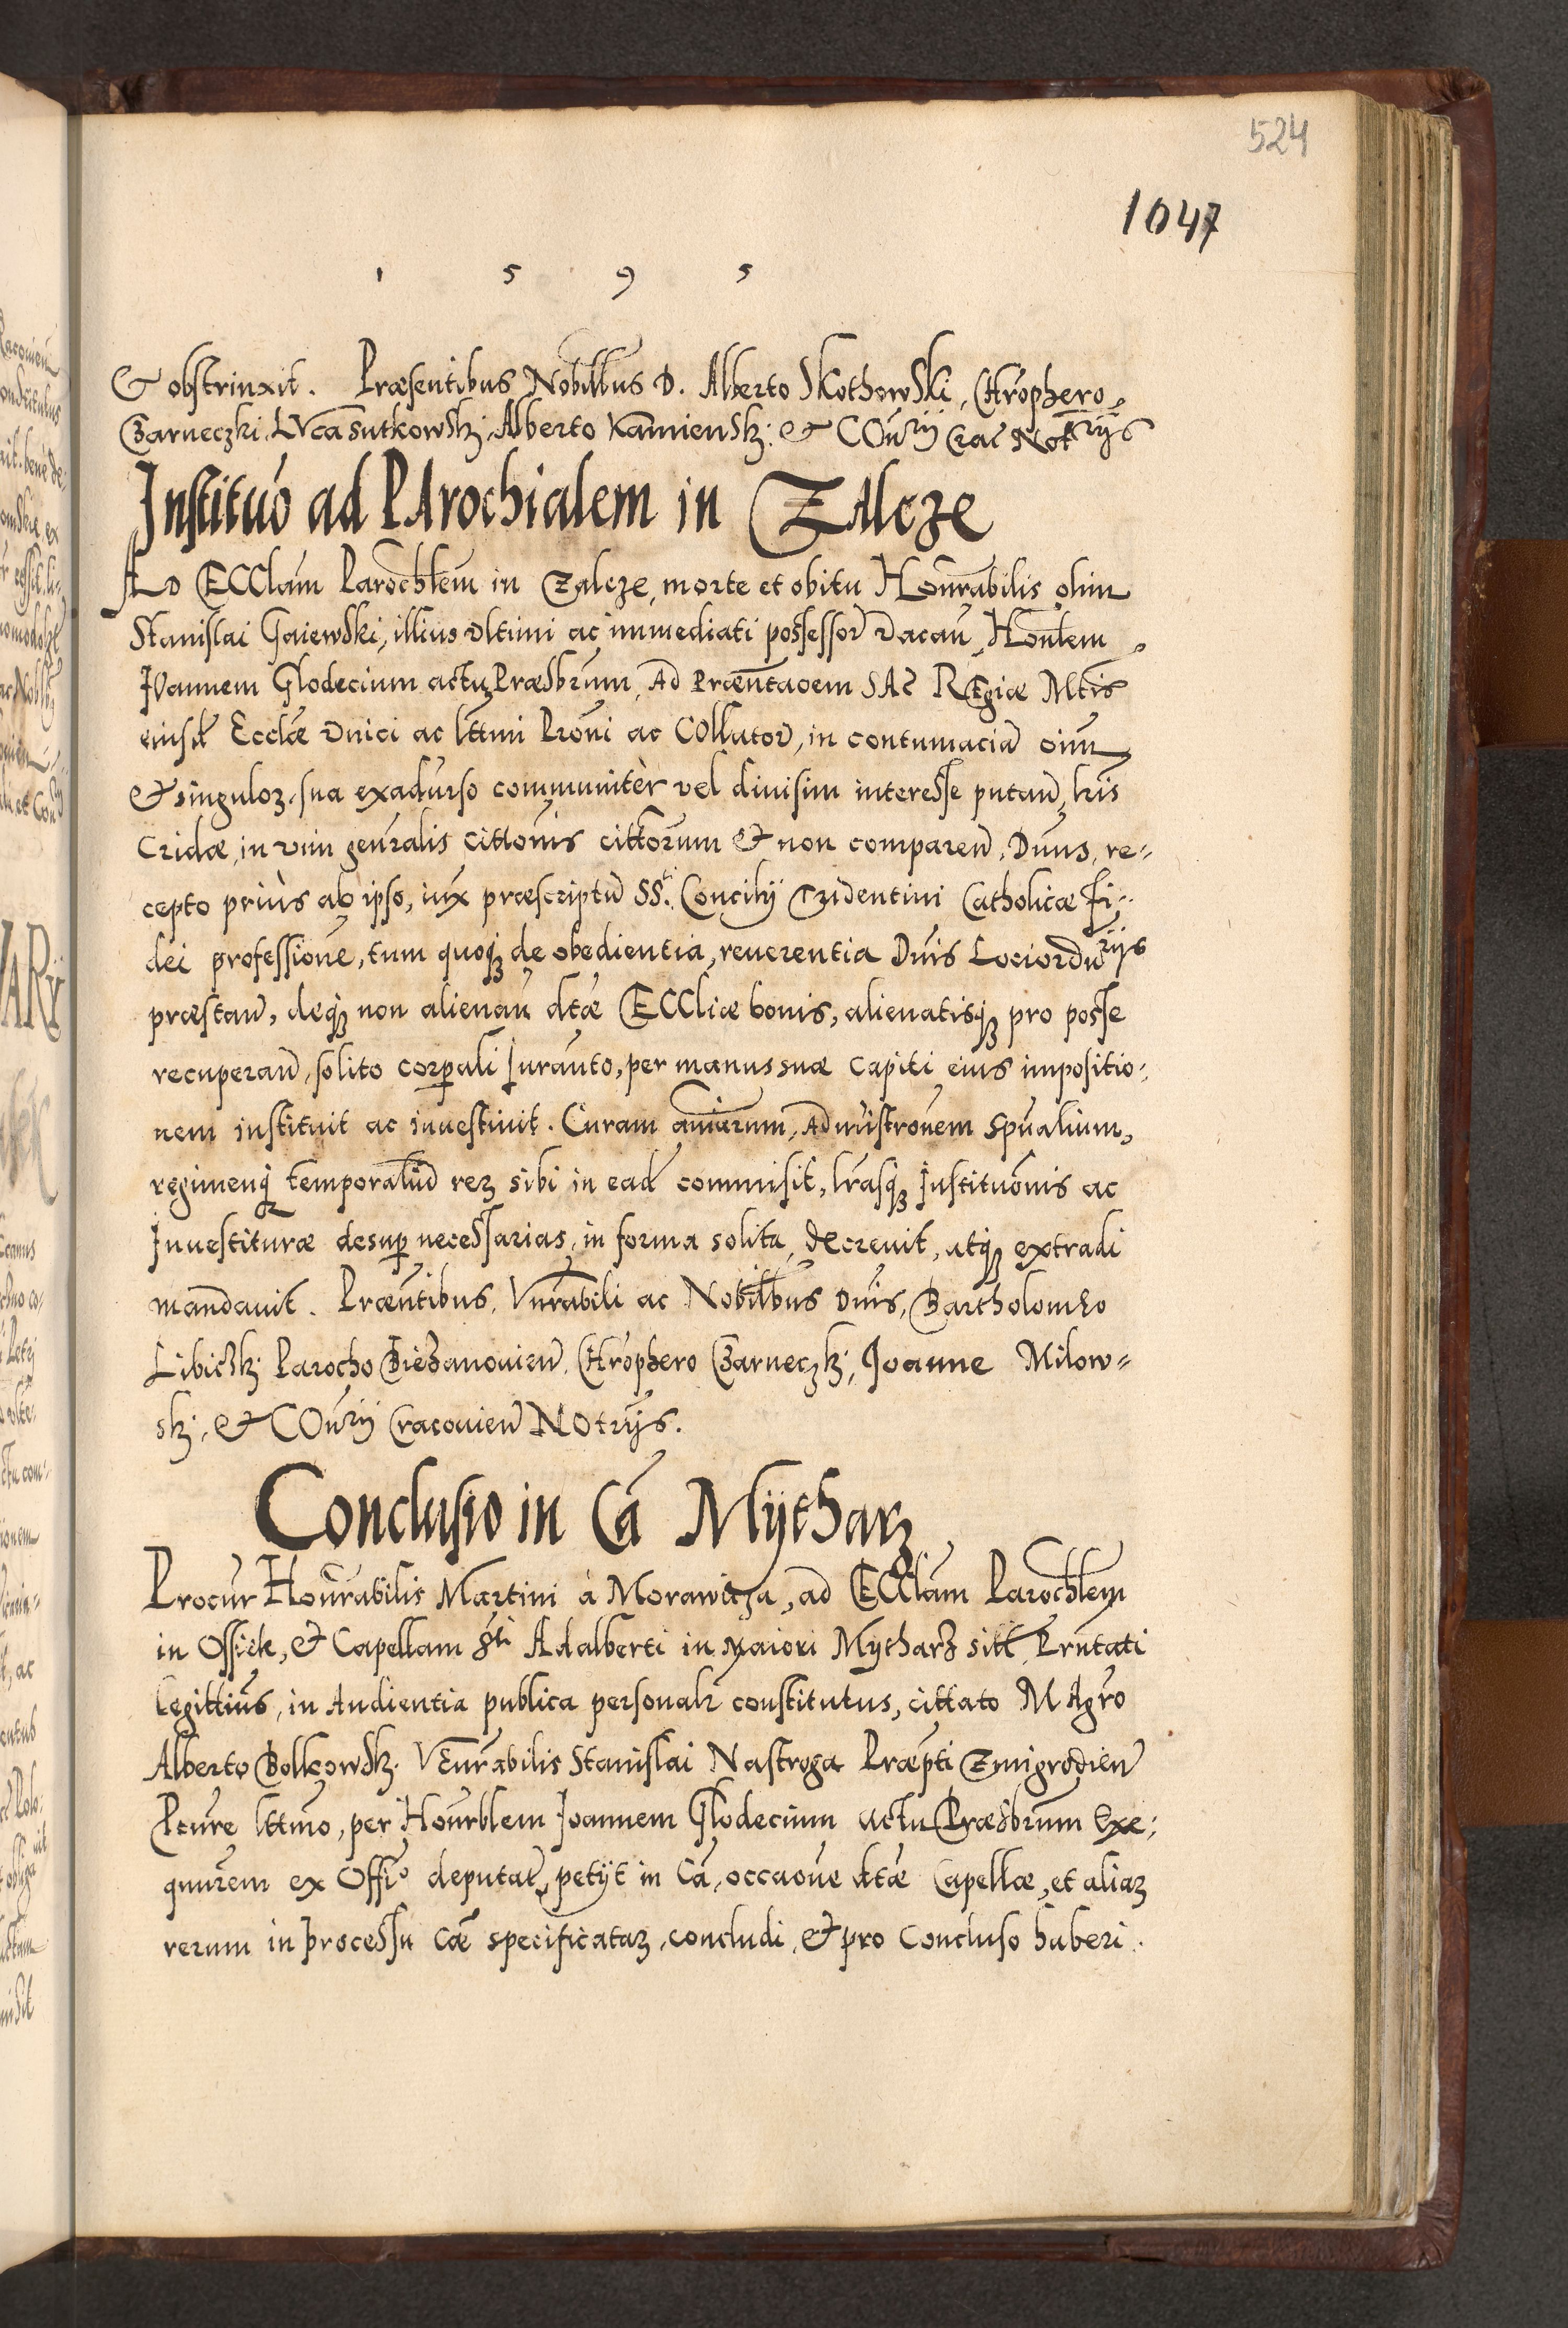 524
1047
1 5 9 5
& obstrinxit. Præsentibus Nobillbus D. Alberto Skothowski, Chrophero
Czarneczki, Lvca Sutkowsky, Alberto Kamiensky & COnrÿ Crac Notrÿs
Instituo ad PArochialem in ZAlcze
AD ECClam Parochlem in Zalcze, morte et obitu Honrabilis olim
Stanislai Gaiewski, illius vltimi ac immediati possessor vacan, Honlem
IOannem Glodecium actu Præsbrum, AD Præntaoem SAc REgiæ Mtis
eiusd Ecclæ vnici ac lttmi Proni ac COllator, in contumacia oim
& singuloꝝ sua exadurso communitèr vel diuisim interesse putan, lris
Cridæ, in vim genralis Cittonis cittorum & non comparen, Dnus, re=
cepto priùs ab ipso, iux præscriptu SS.ti Concilÿ Tridentini Catholicæ Fi=
dei professione, tum quoqꝫ de obedientia, reuerentia Dnis Lociordurÿs
præstan, deqꝫ non alienan dtæ ECCliæ bonis, alienatisqꝫ pro posse
recuperan, solito corpali Iuranto, per manus suæ capiti eius impositio=
nem instituit ac inuestiuit. Curam aniarum, ADmistronem spualium,
regimenqꝫ temporaliu reꝝ sibi in ead commisit, lrasqꝫ Instituonis ac
Inuestituræ desup necessarias, in forma solita, decreuit, atqꝫ extradi
mandauit. Præntibus, Vnrabili ac Nobillbus Dnis, Bartholomeo
Libicsky Parocho Biezanouien, Chrophero Czarneczky, Joanne Milow=
sky, & COnrÿ Cracouien NOtrÿs.
Conclusio in Ca Mÿtharz
Procur Honrabilis Martini à Morawicza, ad ECClam Parochlem
in Ossiek, & Capellam Sti Adalberti in Maiori Mytharz sitt Prntati
Legittius, in Audientia publica personalr constitutus, cittato MAgro
Alberto Bolkowsky Venrabilis Stanislai Nastroga Præpti Zmigrodien
Pcure lttmo, per Honrblem Joannem Glodecium actu Præsbrum Exe=
qunrem ex Offio deputat, petÿt in Ca, occaone dtæ Capellæ, et aliaꝝ
rerum in processu Cæ specificataꝝ, concludi, & pro Concluso haberi.